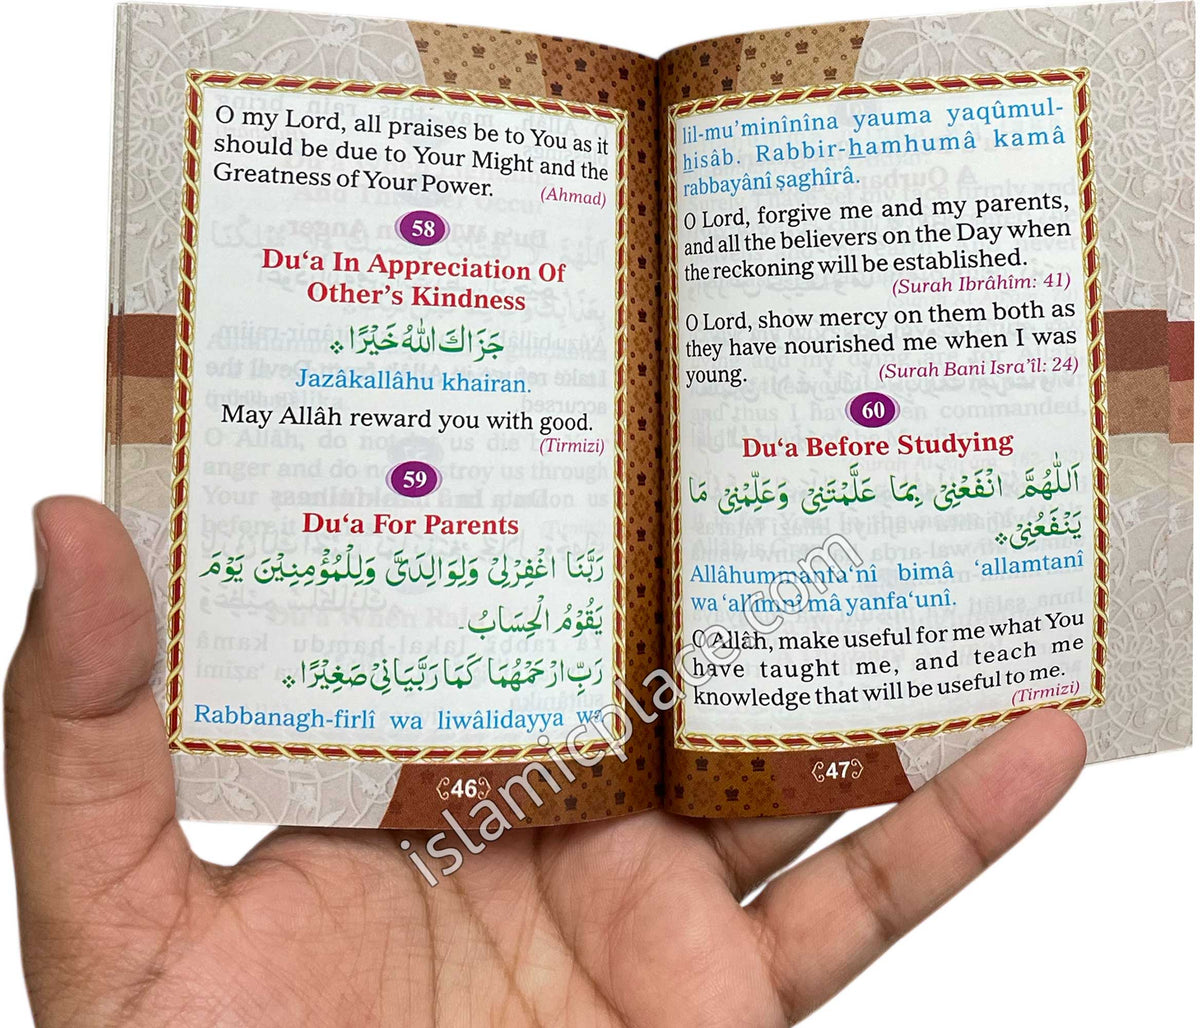 O my Lord, all praises be to You as it
should be due to Your Might and the
Greatness of Your Power.
(Ahmad)
58
Du‘a In Appreciation Of
Other’s Kindness
جَزَاكَ اللّٰهُ خَيْرًا ۞
Jazâkallâhu khairan.
May Allâh reward you with good.
(Tirmizi)
59
Du‘a For Parents
رَبَّنَا اغْفِرْلِيْ وَلِوَالِدَيَّ وَلِلْمُؤْمِنِيْنَ يَوْمَ
يَقُوْمُ الْحِسَابُ.
رَبِّ ارْحَمْهُمَا كَمَا رَبَّيَانِيْ صَغِيْرًا ۞
Rabbanagh-firlî wa liwâlidayya wa
46
lil-mu’minînîna yauma yaqûmul-
hisâb. Rabbir-hamhumâ kamâ
rabbayânî ṣaghîrâ.
O Lord, forgive me and my parents,
and all the believers on the Day when
the reckoning will be established.
(Surah Ibrâhîm: 41)
O Lord, show mercy on them both as
they have nourished me when I was
young.
(Surah Bani Isra’îl: 24)
60
Du‘a Before Studying
اَللّٰهُمَّ انْفَعْنِيْ بِمَا عَلَّمْتَنِيْ وَعَلِّمْنِيْ مَا
يَنْفَعُنِيْ ۞
Allâhummanfa‘nî bimâ ‘allamtanî
wa ‘allimnî mâ yanfa‘unî.
O Allâh, make useful for me what You
have taught me, and teach me
knowledge that will be useful to me.
(Tirmizi)
47
islamicplace.com